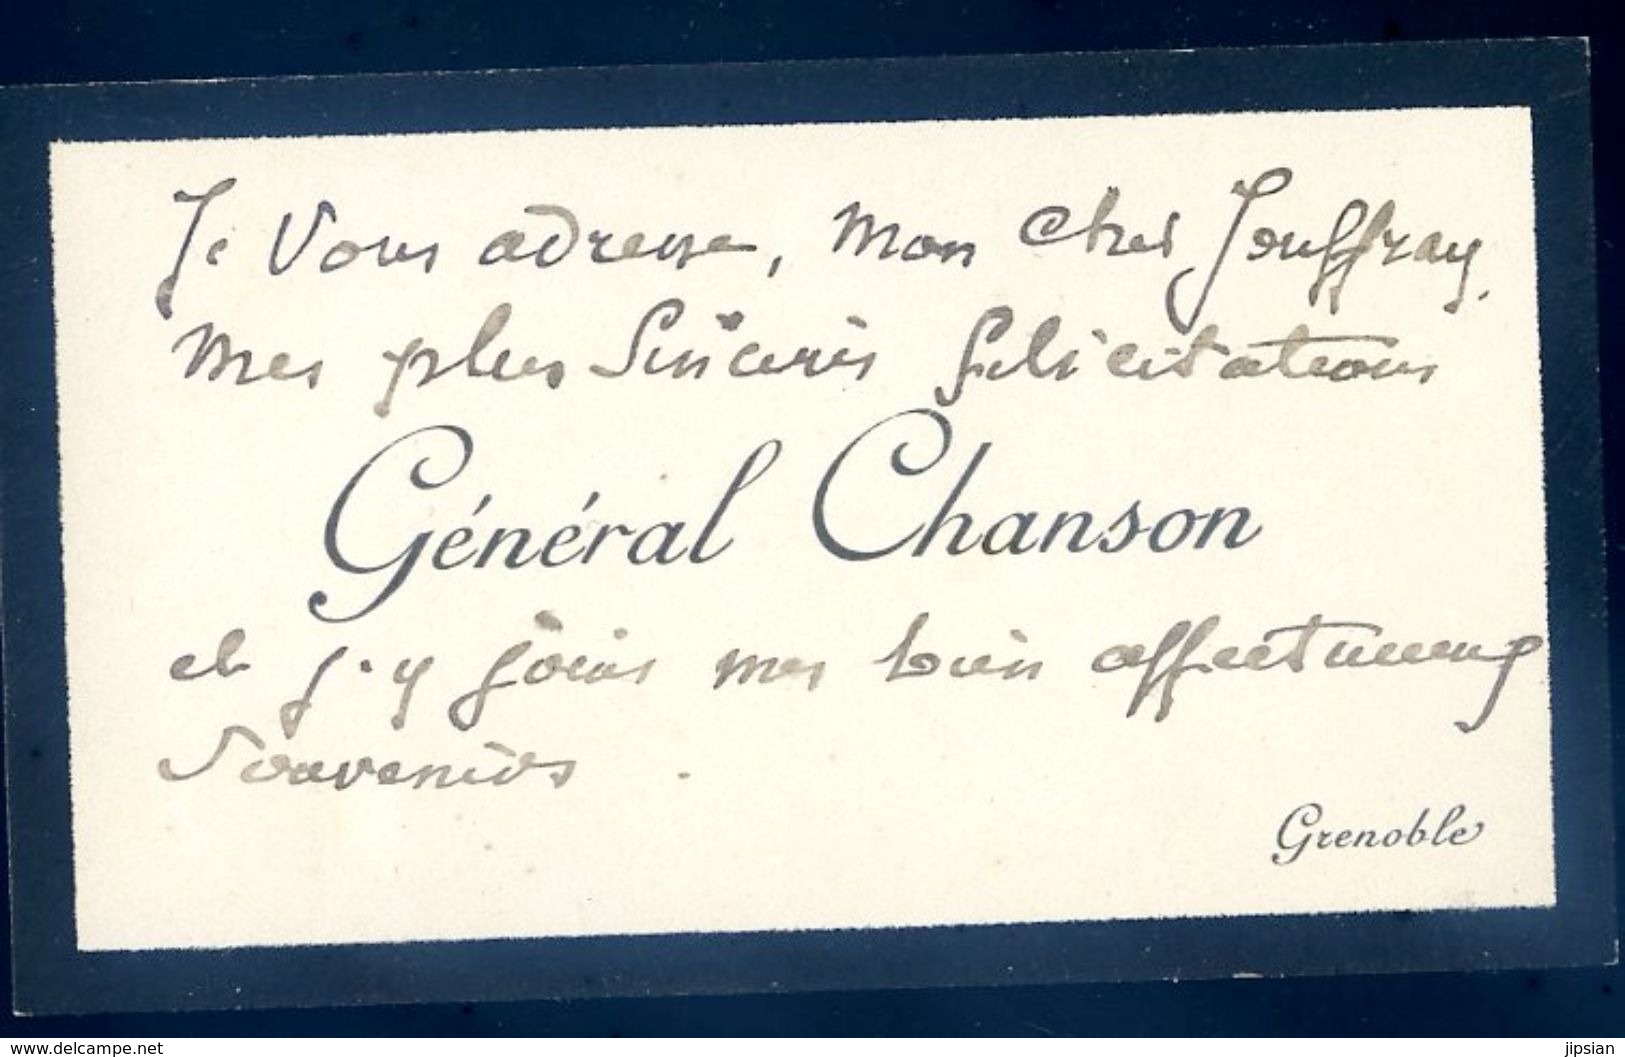 Je Vous adresse, Mon cher Jouffray,
Mes plus Sincères félicitations
Général Chanson
et j'y joins mes bien affectueux
Souvenirs.
Grenoble
www.delcampe.net
jipsian